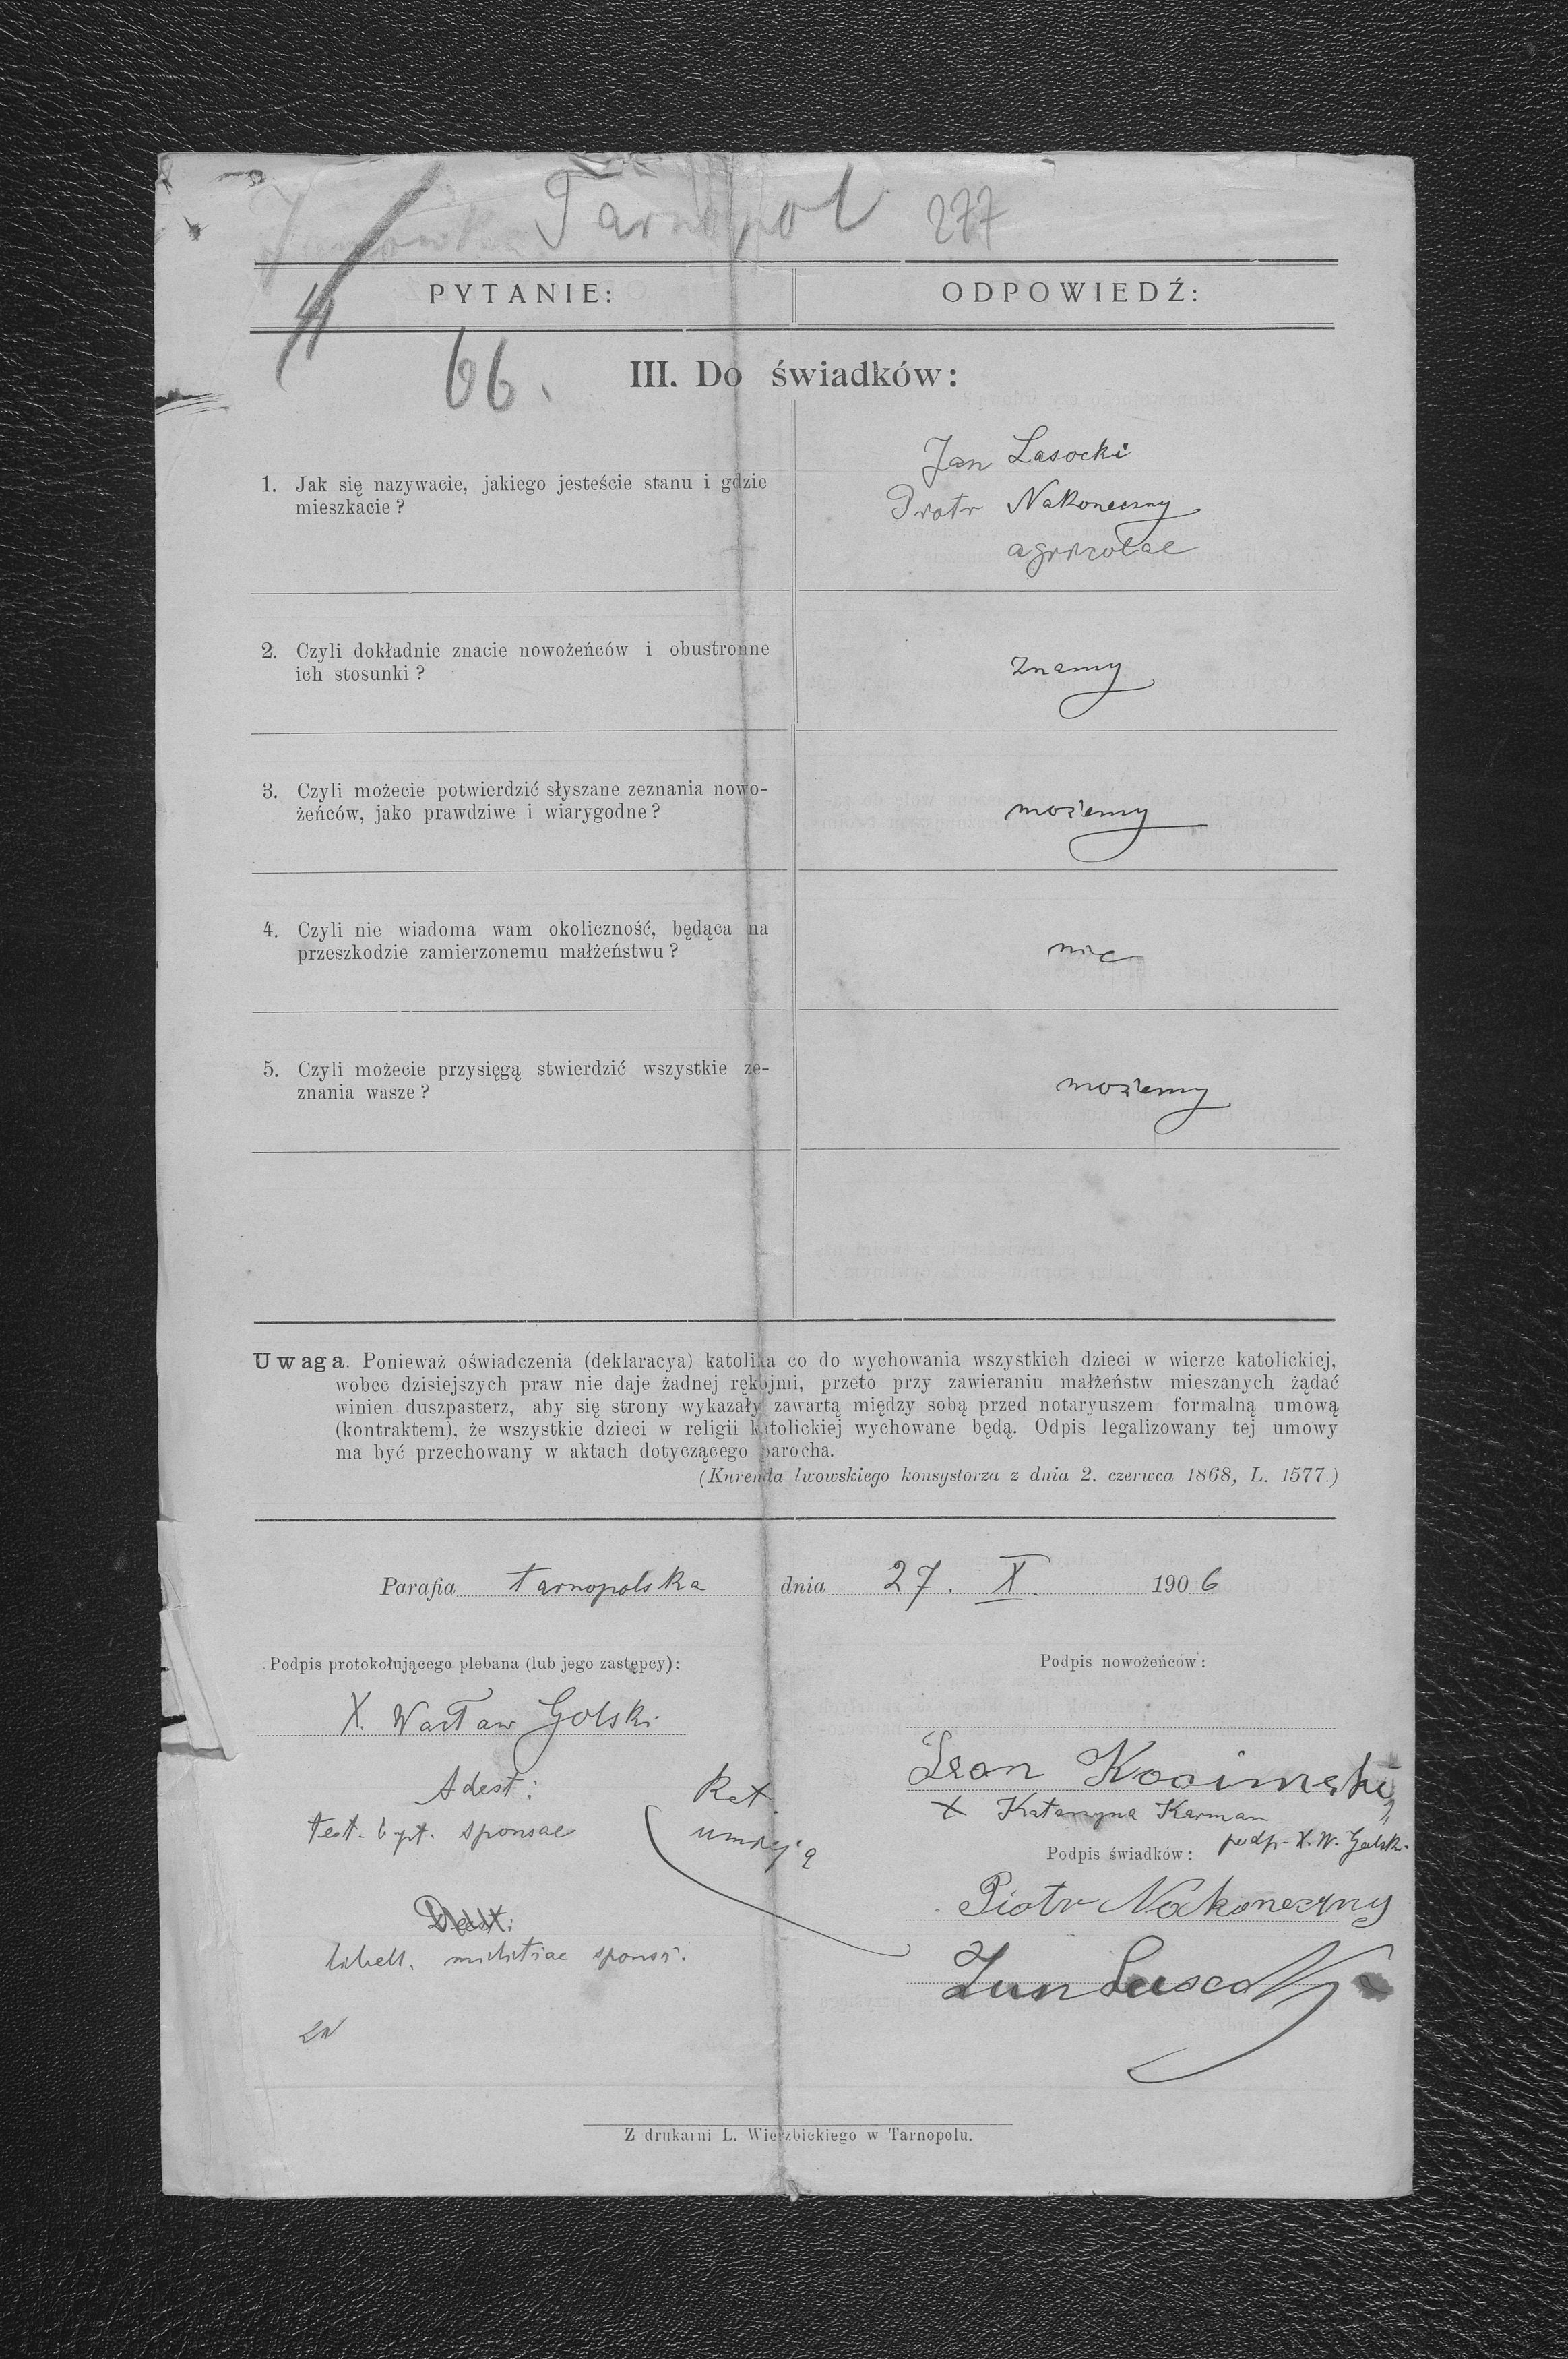 Tarnopol 277
PYTANIE: ODPOWIEDŹ:
66.
III. Do świadków:
1. Jak się nazywacie, jakiego jesteście stanu i gdzie
mieszkacie?
Jan Lasocki
Piotr Nakoneczny
agricolae
2. Czyli dokładnie znacie nowożeńców i obustronne
ich stosunki?
znamy
3. Czyli możecie potwierdzić słyszane zeznania nowo-
żeńców, jako prawdziwe i wiarygodne?
możemy
4. Czyli nie wiadoma wam okoliczność, będąca na
przeszkodzie zamierzonemu małżeństwu?
nie
5. Czyli możecie przysięgą stwierdzić wszystkie ze-
znania wasze?
możemy
Uwaga. Ponieważ oświadczenia (deklaracya) katolika co do wychowania wszystkich dzieci w wierze katolickiej,
wobec dzisiejszych praw nie daje żadnej rękojmi, przeto przy zawieraniu małżeństw mieszanych żądać
winien duszpasterz, aby się strony wykazały zawartą między sobą przed notaryuszem formalną umową
(kontraktem), że wszystkie dzieci w religii katolickiej wychowane będą. Odpis legalizowany tej umowy
ma być przechowany w aktach dotyczącego parocha.
(Kurenda lwowskiego konsystorza z dnia 2. czerwca 1868, L. 1577.)
Parafia tarnopolska dnia 27. X. 1906
Podpis protokołującego plebana (lub jego zastępcy):
Podpis nowożeńców:
X. Wacław Golski
Adest:
test. bapt. sponsae
libell. militiae sponsi.
Kat.
umieją
+ Katarzyna Karman
podp. X. W. Golski
Podpis świadków:
Piotr Nakoneczny
Jan Lasocki
Z drukarni L. Wierzbickiego w Tarnopolu.